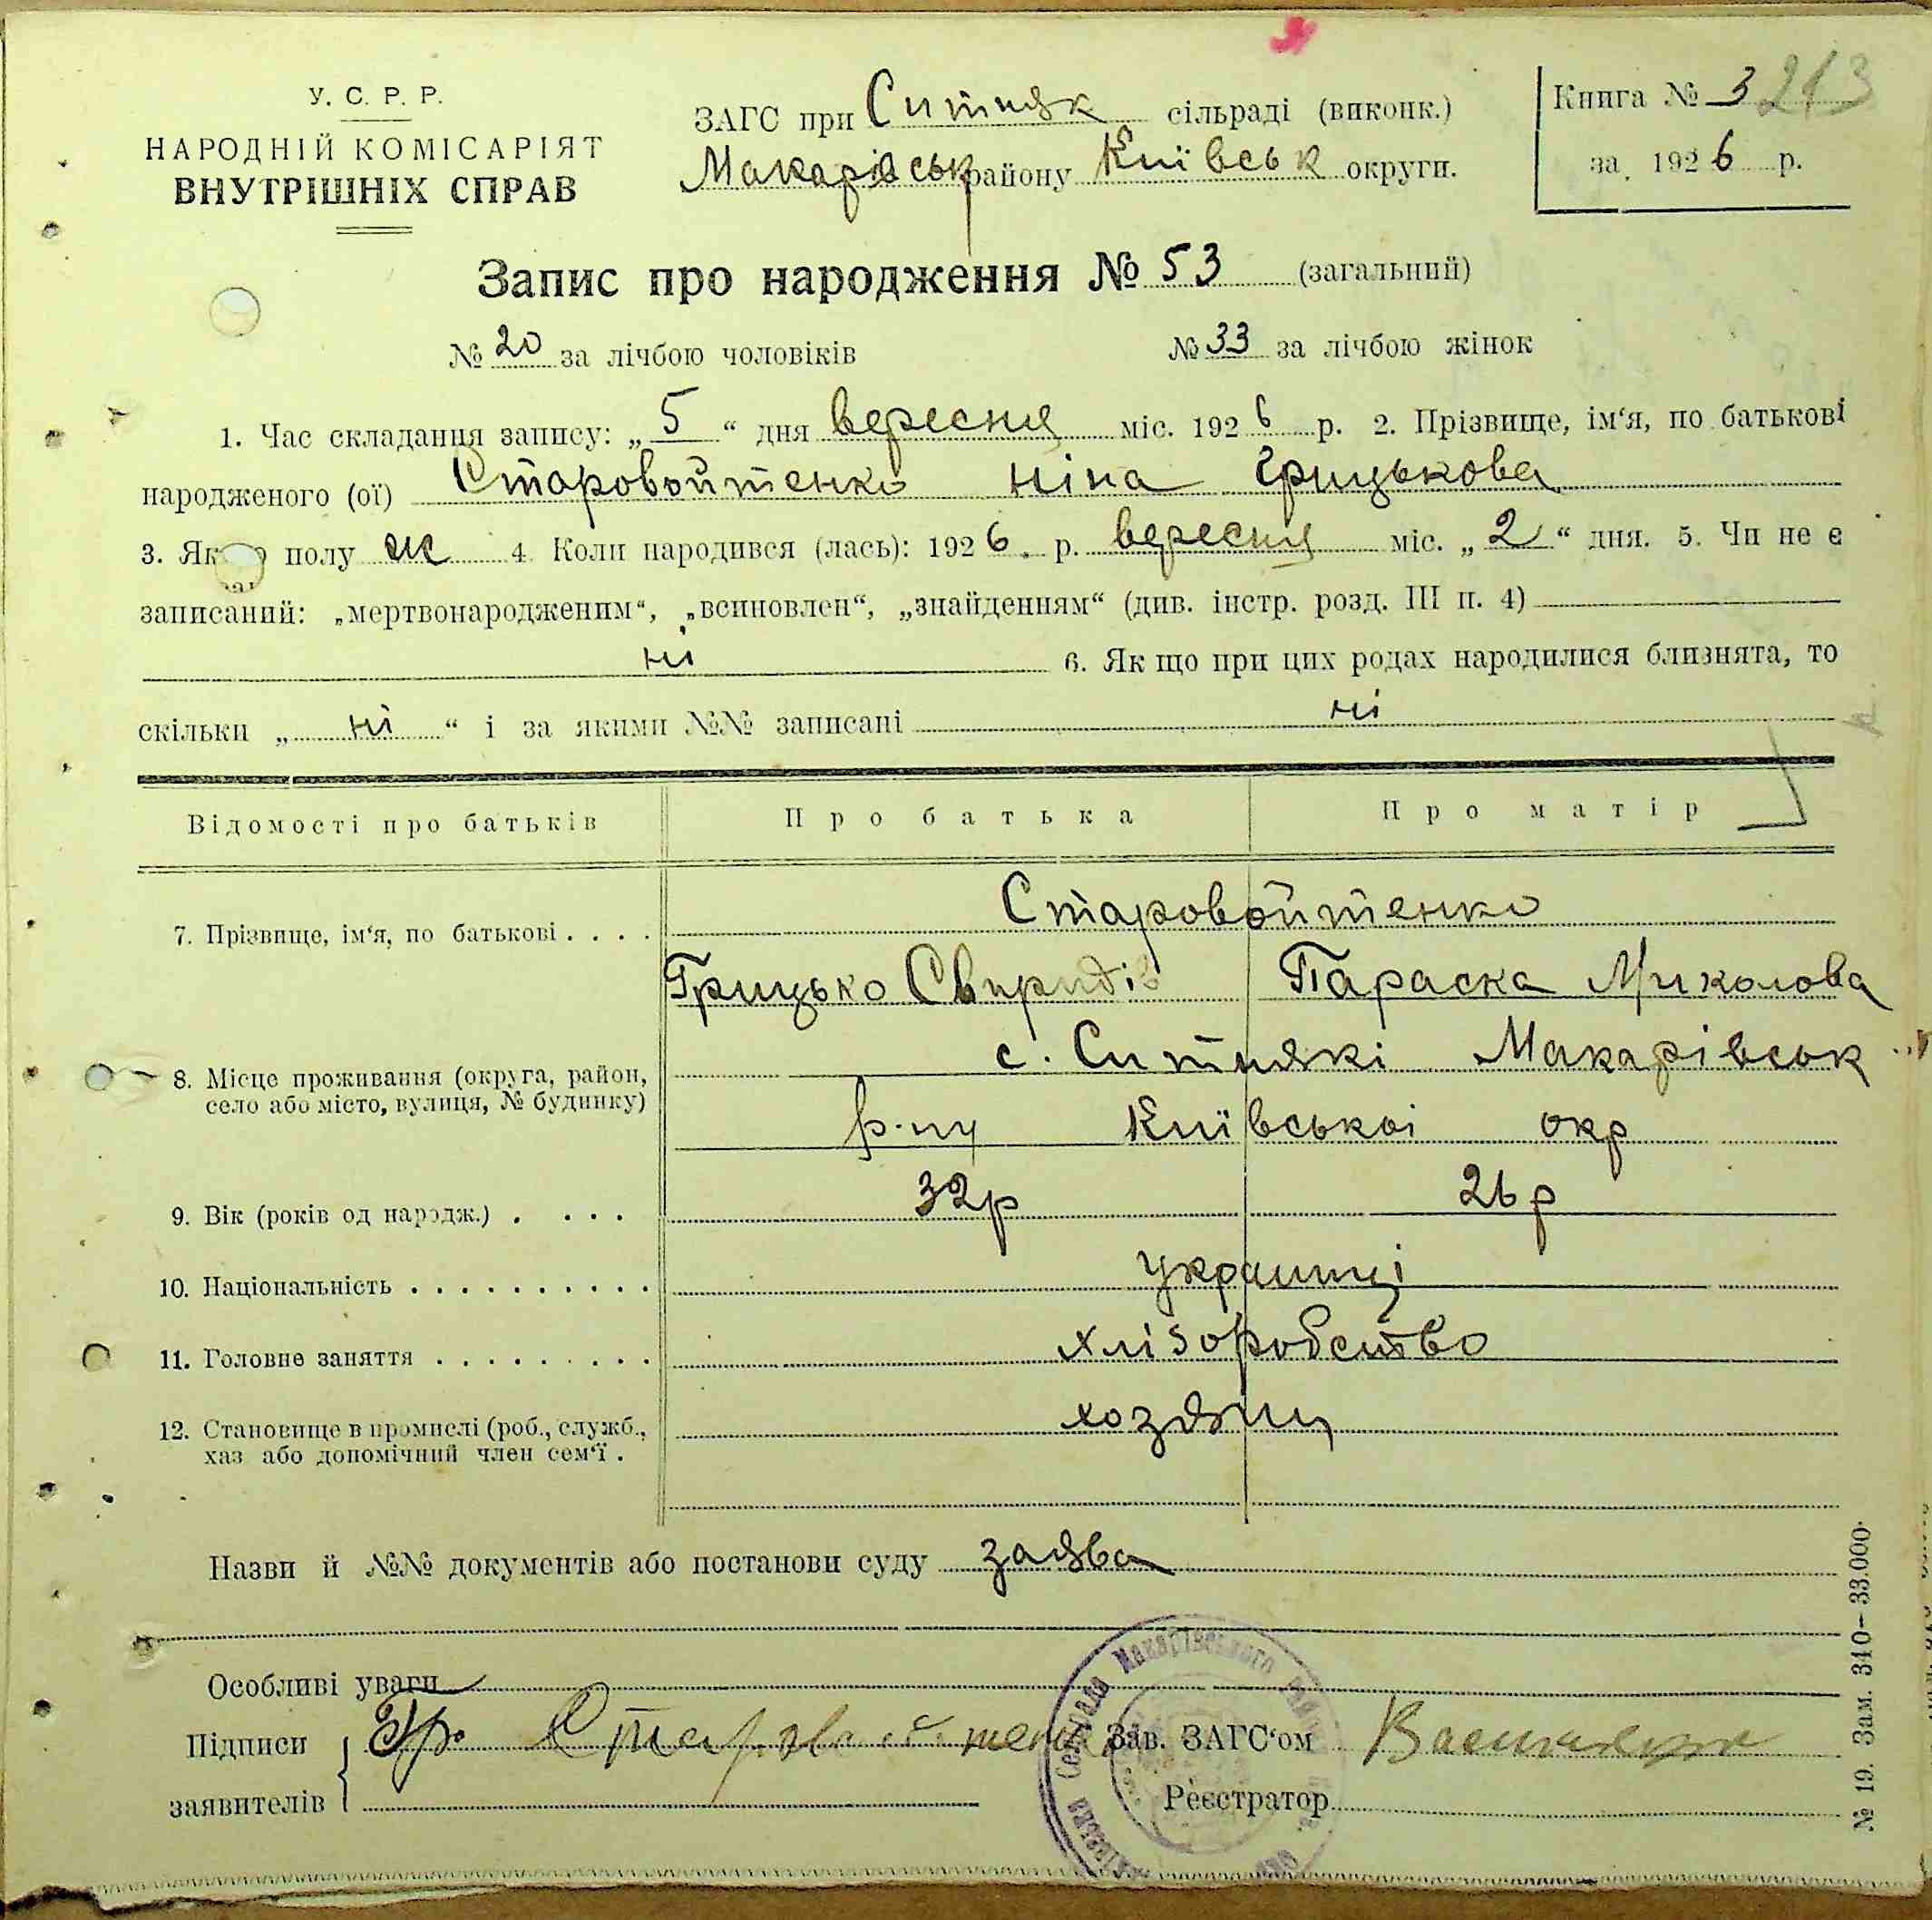 У. С. Р. Р.
НАРОДНІЙ КОМІСАРІЯТ
ВНУТРІШНІХ СПРАВ
ЗАГС при Ситняк сільраді (виконк.)
Макарівськ району Київськ округи.
Книга № 3 213
за 1926 р.
Запис про народження № 53 (загальний)
№ 20 за лічбою чоловіків № 33 за лічбою жінок
1. Час складання запису: „5“ дня вересня міс. 1926 р. 2. Прізвище, ім‘я, по батькові
народженого (ої) Старовойтенко Ніна Грицькова
3. Як полу ж 4 Коли народився (лась): 1926. р. вересня міс. „2“ дня. 5. Чи не є
записаний: „мертвонародженим“, „всиновлен“, „знайденням“ (див. інстр. розд. III п. 4)
ні 6. Як що при цих родах народилися близнята, то
скільки „ні“ і за якими №№ записані ні
Відомості про батьків Про батька Про матір
7. Прізвище, ім‘я, по батькові . . . . Старовойтенко
Грицько Свиридів Параска Миколова
8. Місце проживання (округа, район, с. Ситнякі Макарівськ
село або місто, вулиця, № будинку)
р-ну Київськоі окр
9. Вік (років од народж.) . . . . 32р 26р
10. Національність . . . . . . . . . . украинці
11. Головне заняття . . . . . . . . . хлізоробство
12. Становище в промислі (роб., служб., хозяин
хаз або допомічний член сем‘ї .
Назви й №№ документів або постанови суду заява
Особливі уваги
Підписи Гр. Старовойтенко Зав. ЗАГС‘ом
заявителів Реєстратор
Сельрада Макарівського
№ 19. Зам. 340–33.000.